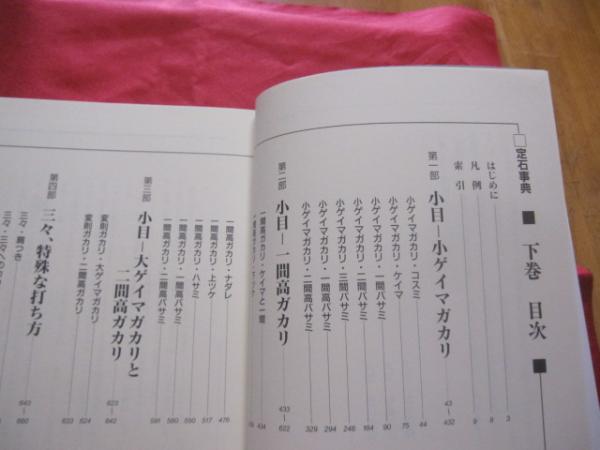 定石事典
下巻 目次
はじめに 3
凡例 8
索引 9
第一部 小目―小ゲイマガカリ 43―432
小ゲイマガカリ・コスミ 44
小ゲイマガカリ・ケイマ 75
小ゲイマガカリ・一間バサミ 90
小ゲイマガカリ・二間バサミ 184
小ゲイマガカリ・三間バサミ 248
小ゲイマガカリ・一間高バサミ 294
小ゲイマガカリ・二間高バサミ 329
第二部 小目―一間高ガカリ 433―622
一間高ガカリ・ケイマと一間 434
一間高ガカリ・ナダレ 476
一間高ガカリ・上ツケ 517
一間高ガカリ・ハサミ 550
一間高ガカリ・一間高バサミ
一間高ガカリ・二間高バサミ 591
第三部 小目―大ゲイマガカリと
二間高ガカリ 623―642
変則ガカリ・大ゲイマガカリ 624
変則ガカリ・二間高ガカリ 633
第四部 三々、特殊な打ち方 643―660
三々・肩つき
三々・三々への